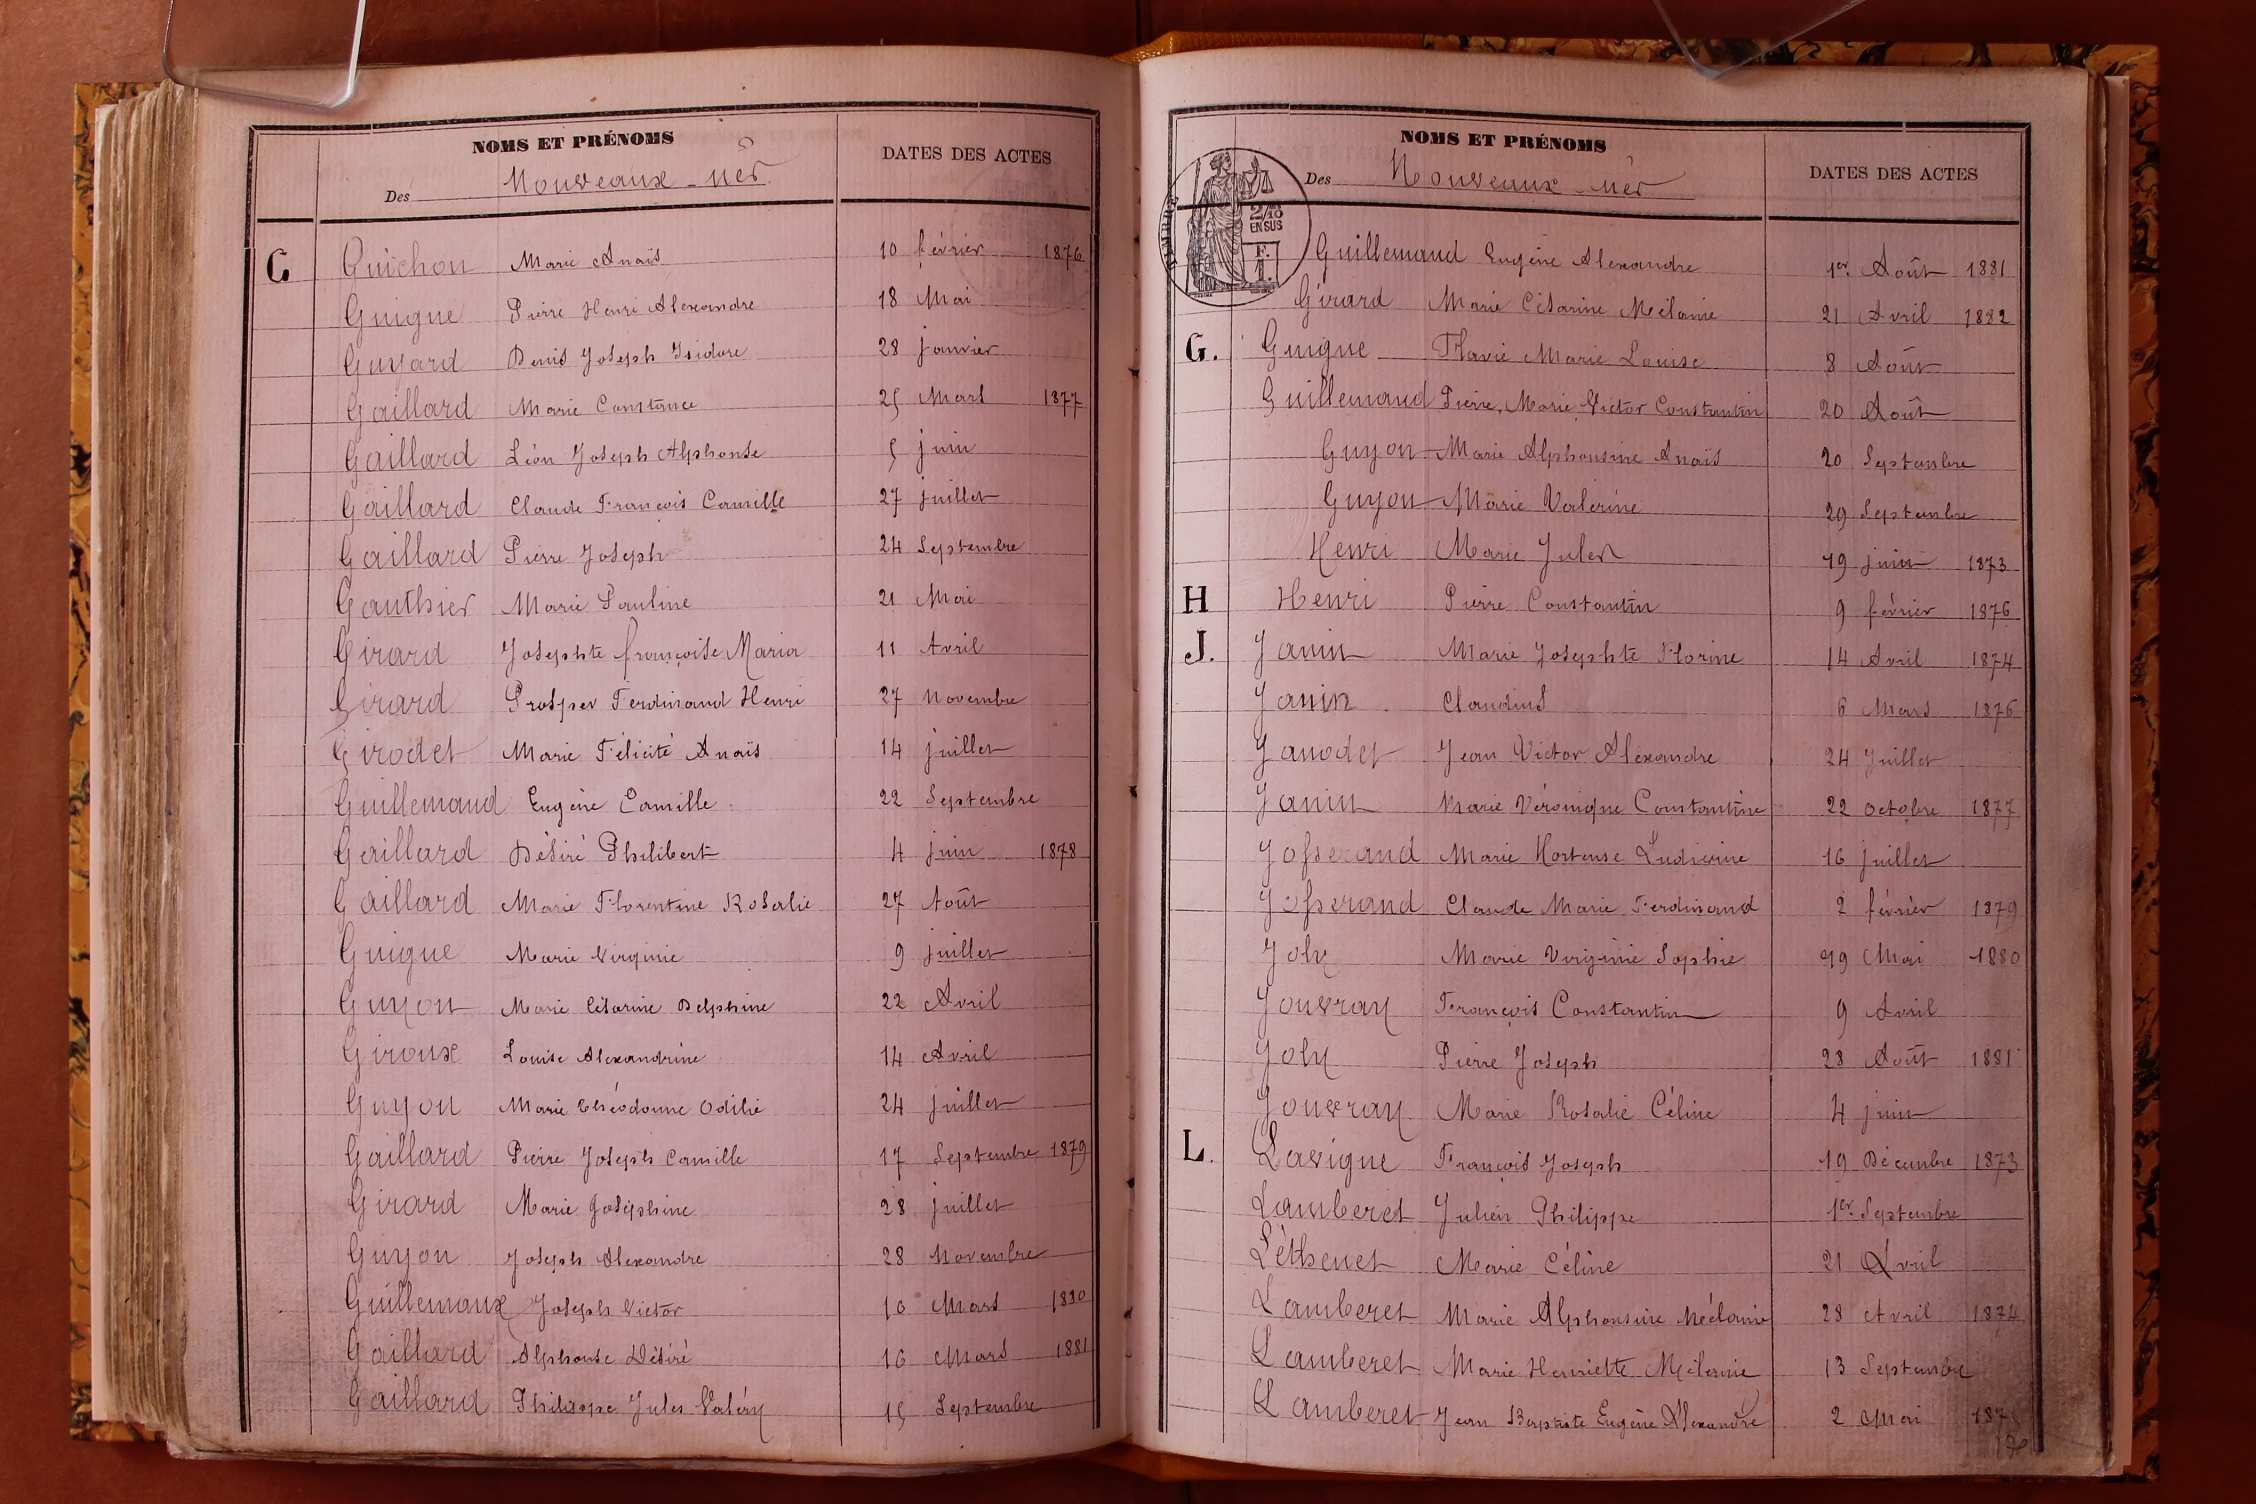 NOMS ET PRÉNOMS
DATES DES ACTES
Des Nouveaux-nés
G Guichon Marie Anaïs 10 février 1876
Guigue Pierre Henri Alexandre 18 Mai
Guyard Denis Joseph Isidore 28 janvier
Gaillard Marie Constance 25 Mars 1877
Gaillard Léon Joseph Alphonse 5 juin
Gaillard Claude François Camille 27 juillet
Gaillard Pierre Joseph 24 Septembre
Gauthier Marie Pauline 21 Mai
Girard Josephte françoise Maria 11 Avril
Girard Prosper Ferdinand Henri 27 Novembre
Girodet Marie Félicité Anaïs 14 juillet
Guillemaud Eugène Camille 22 Septembre
Gaillard Désiré Philibert 4 juin 1878
Gaillard Marie Florentine Rosalie 27 Août
Guigue Marie Virginie 9 juillet
Guyon Marie Césarine Delphine 22 Avril
Giroux Louise Alexandrine 14 Avril
Guyon Marie Odilie 24 juillet
Gaillard Pierre Joseph Camille 17 Septembre 1879
Girard Marie Joséphine 28 juillet
Guyon Joseph Alexandre 28 Novembre
Guillemaux Joseph Victor 10 Mars 1880
Gaillard Alphonse Désiré 16 Mars 1881
Gaillard Philippe Jules Valéry 15 Septembre
NOMS ET PRÉNOMS
DATES DES ACTES
Des Nouveaux-nés
2/10
EN SUS
F.
1.
Guillemaud Eugène Alexandre 1er Août 1881
Girard Marie Césarine Mélanie 21 Avril 1882
G. Guigue Flavie Marie Louise 8 Août
Guillemaud Pierre Marie Victor Constantin 20 Août
Guyon Marie Alphonsine Anaïs 20 Septembre
Guyon Marie Valérine 29 Septembre
Henri Marie Jules 19 juin 1873
H Henri Pierre Constantin 9 février 1876
J. Janin Marie Josephte Florine 14 Avril 1874
Janin Claudius 6 Mars 1876
Janodet Jean Victor Alexandre 24 Juillet
Janin Marie Véronique Constantine 22 octobre 1877
Josserand Marie Hortense Ludivine 16 juillet
Josserand Claude Marie Ferdinand 2 février 1879
Joly Marie Virginie Sophie 19 Mai 1880
Jouvray François Constantin 9 Avril
Joly Pierre Joseph 28 Août 1881
Jouvray Marie Rosalie Céline 4 juin
L. Lavigne François Joseph 19 Décembre 1873
Lamberet Julien Philippe 1er Septembre
Lèthenet Marie Céline 21 Avril
Lamberet Marie Alphonsine Mélanie 28 Avril 1874
Lamberet Marie Henriette Mélanie 13 Septembre
Lamberet Jean Baptiste Eugène Alexandre 2 Mai